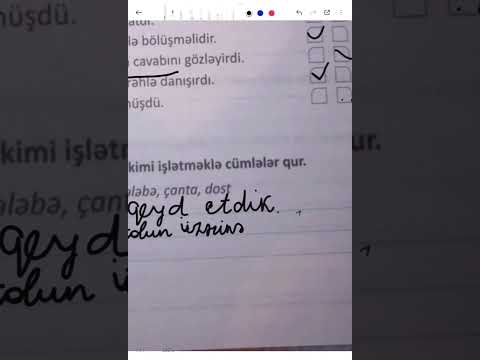 lə bölüşməlidir.
cavabını gözləyirdi.
rəhlə danışırdı.
nüşdü.
kimi işlətməklə cümlələr qur.
ələbə, çanta, dost
qeyd etdik.
olun üzərinə